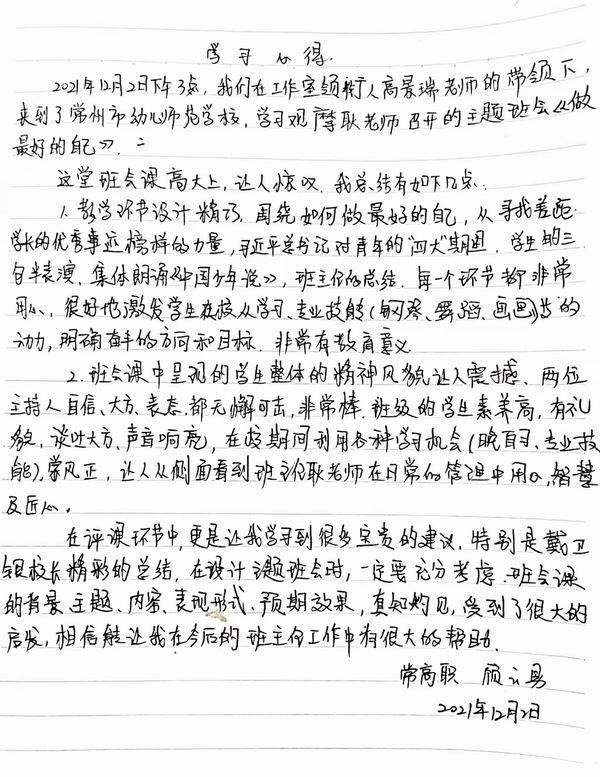 学习心得
2021年12月2日下午3点，我们在工作室领衔人高景瑞老师的带领下，
来到了常州市幼儿师范学校，学习观摩耿老师召开的主题班会《做
最好的自己》。
这堂班会课高大上，让人惊叹，我总结有如下几点：
1. 教学环节设计精巧，围绕如何做最好的自己，从寻找差距
学长的优秀事迹榜样的力量，习近平总书记对青年的“四大”期盼，学生的三
句半表演，集体朗诵《中国少年说》，班主任的总结，每一个环节都非常
用心，很好地激发学生在校从学习、专业技能（钢琴、舞蹈、画画）等的
动力，明确奋斗的方向和目标，非常有教育意义
2. 班会课中呈现的学生整体的精神风貌让人震撼，两位
主持人自信、大方、表态都无懈可击，非常棒，班级的学生素养高，有礼
貌，谈吐大方、声音响亮，在校期间利用各种学习机会（晚自习、专业技
能），学风正，让人从侧面看到班主任耿老师在日常的管理中用心，智慧
及匠心。
在评课环节中，更是让我学习到很多宝贵的建议，特别是戴卫
银校长精彩的总结，在设计主题班会时，一定要充分考虑班会课
的背景、主题、内容、表现形式、预期效果，真知灼见，受到了很大的
启发，相信能让我在今后的班主任工作中有很大的帮助。
常高职 顾
2021年12月2日